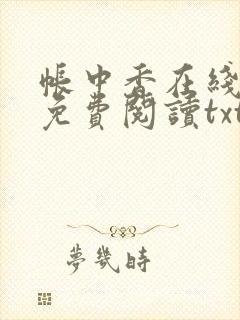 帳中香在綫
免費閱讀txt
夢幾時